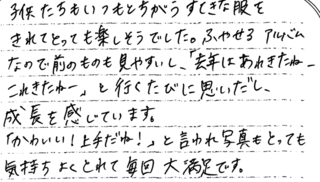 子供たちもいつもとちがうすてきな服を
きれてとっても楽しそうでした。ふやせるアルバム
なので前のものも見やすいし、「去年はあれきたねー
これきたねー」と行くたびに思いだし、
成長を感じています。
「かわいい！上手だね！」と言われ写真もとっても
気持ちよくとれて毎回大満足です。